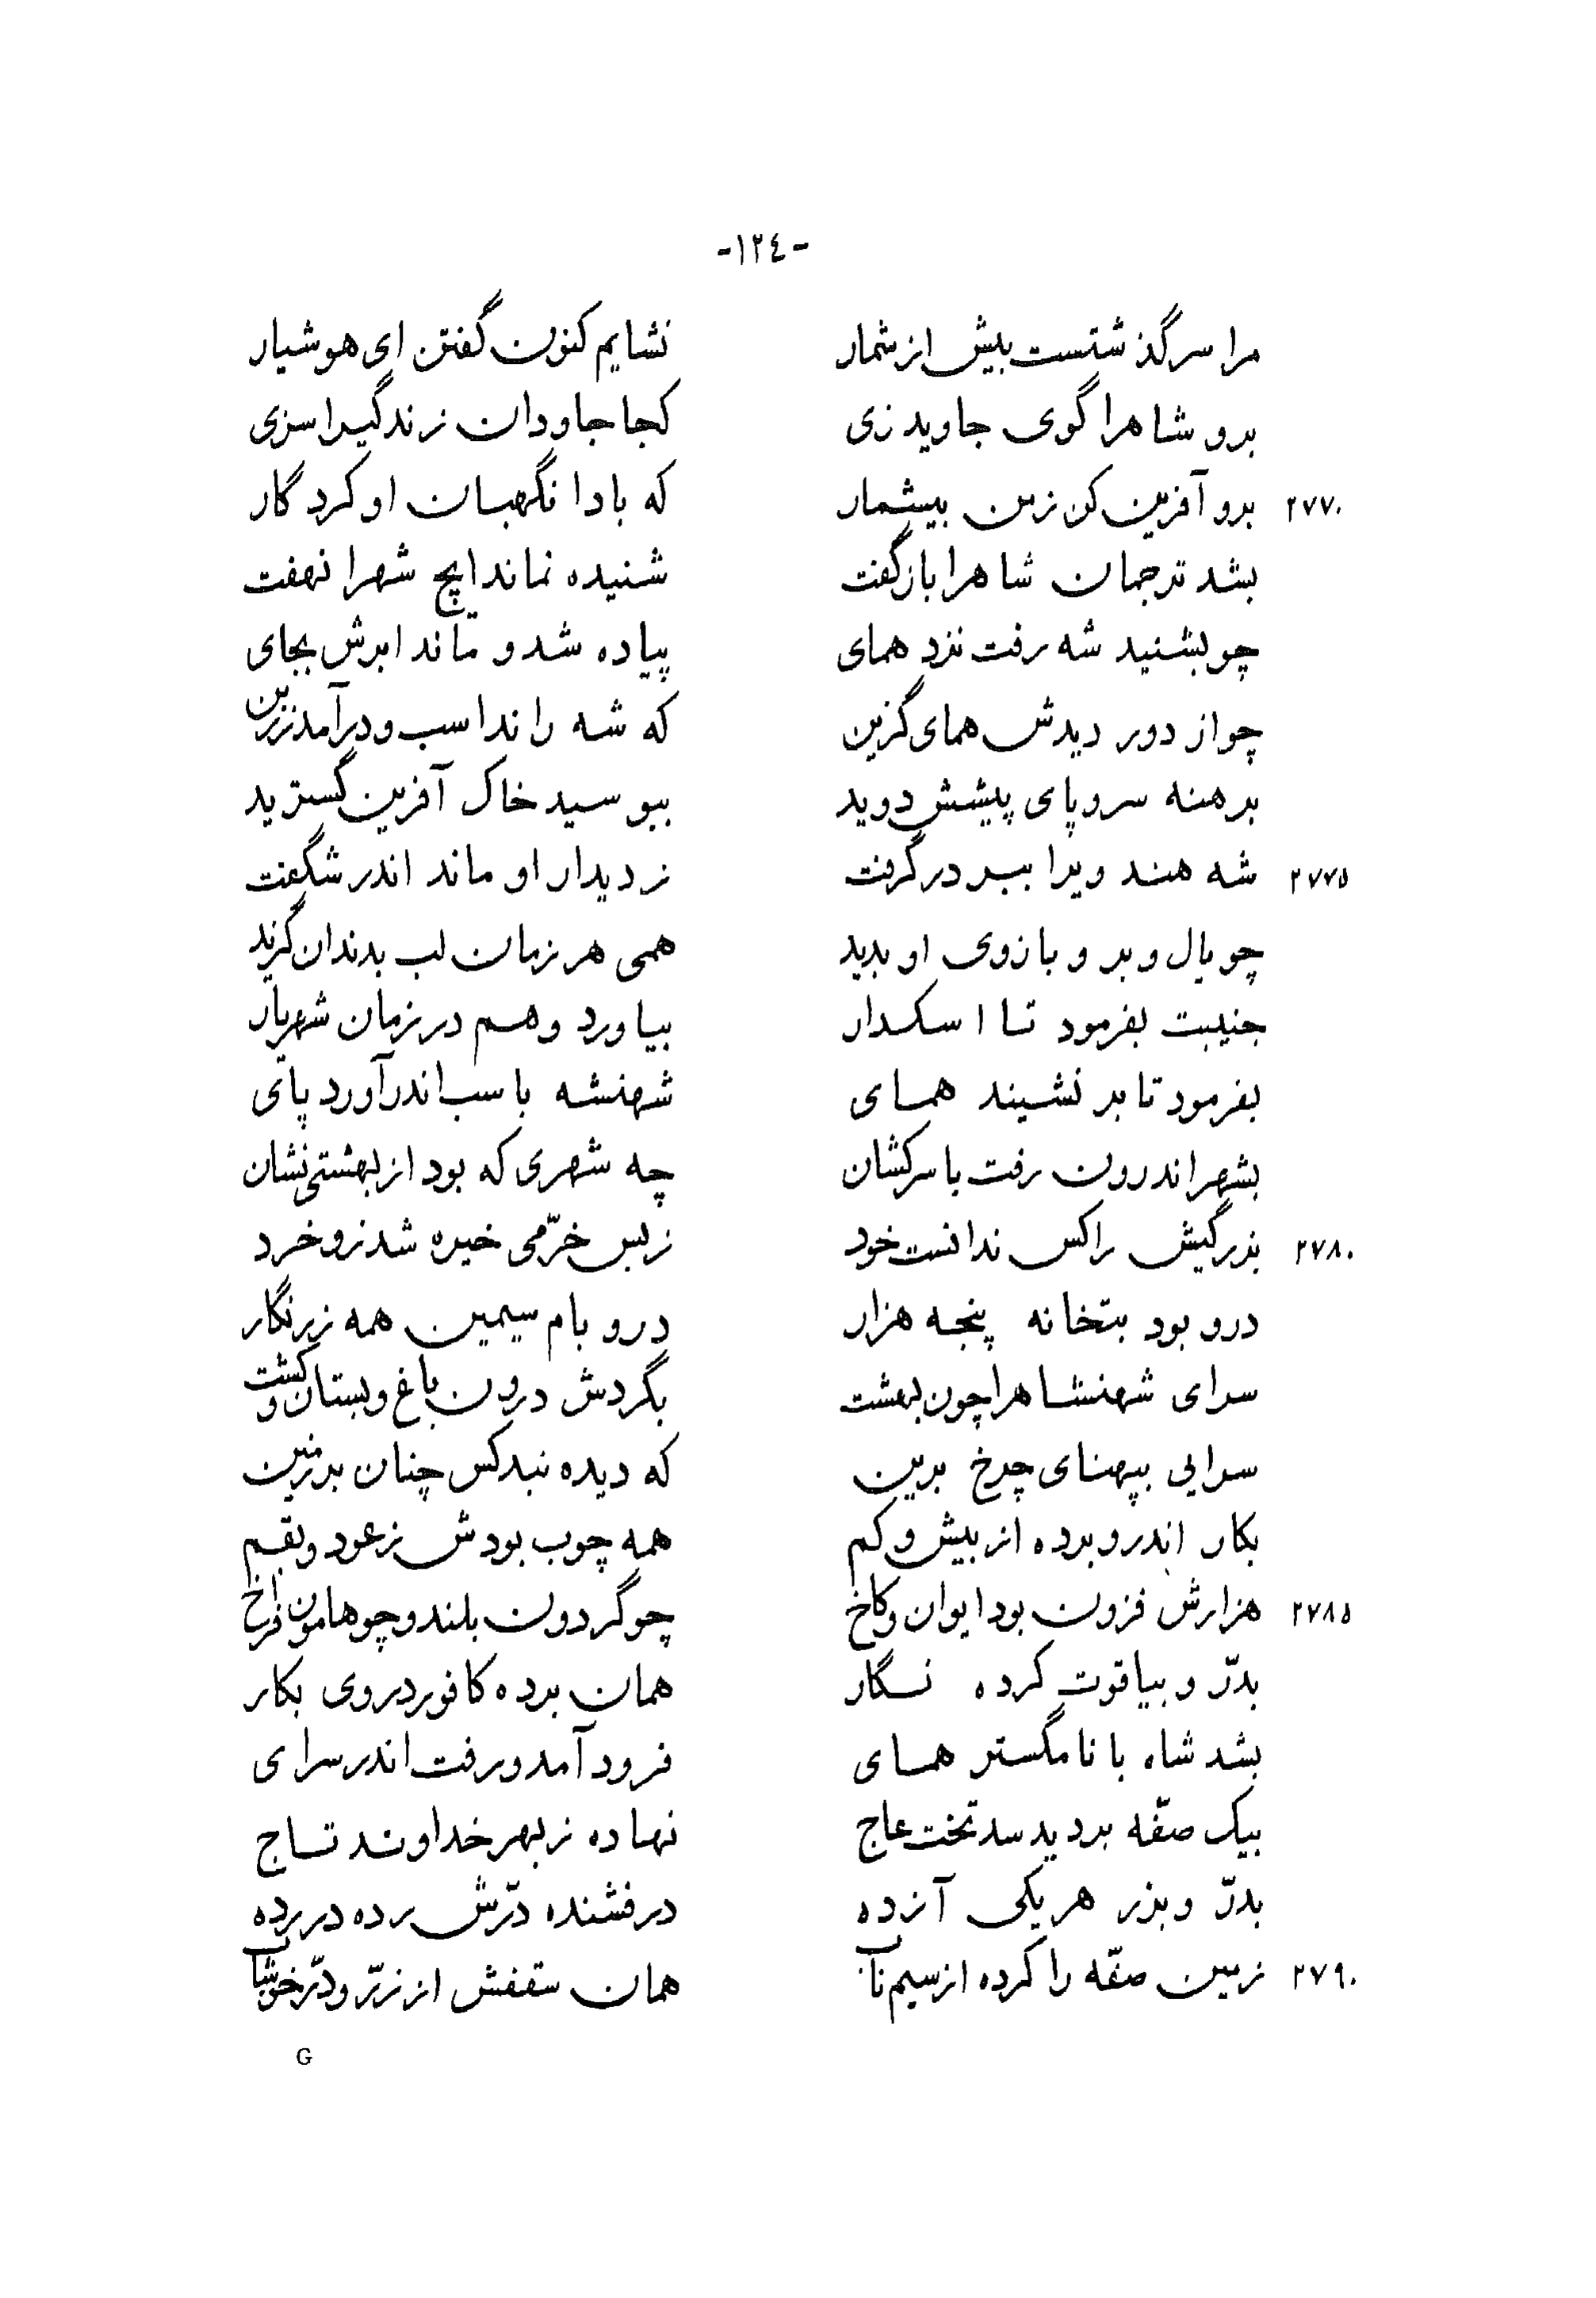 -١٢٤-
مرا سرگذشتست بیش از شمار نشایم کنون گفتن ای هوشیار
برو شاهرا گوی جاوید زی کجا جاودان زندگیرا سزی
٢٧٧٠ برو آفرین کن زمن بیشمار که بادا نگهبان او کردگار
بشد ترجمان شاهرا بازگفت شنیده نماند ایچ شهرا نهفت
چو بشنید شه رفت نزد همای پیاده شد و ماند ابرش بجای
چو از دور دیدش همای گزین که شه راند اسب و درآمد ززین
برهنه سر و پای پیشش دوید ببوسید خاک آفرین گسترید
٢٧٧٥ شه هند ویرا ببر درگرفت ز دیدار او ماند اندر شگفت
چو یال و بر و بازوی او بدید همی هر زمان لب بدندان گزید
جنیبت بفرمود تا اسکدار بیاورد و هم در زمان شهریار
بفرمود تا بر نشیند همای شهنشه باسب اندر آورد پای
بشهر اندرون رفت با سرکشان چه شهری که بود از بهشتی نشان
٢٧٨٠ بزرگیش را کس ندانست خود زبس خرّمی خیره شد زو خرد
درو بود بتخانه پنجه هزار در و بام سیمین همه زرنگار
سرای شهنشاهرا چون بهشت بگردش درون باغ و بستان و کشت
سرایی بپهنای چرخ برین که دیده نبد کس چنان بر زمین
بکار اندرو برده از بیش و کم همه چوب بودش ز عود و بقم
٢٧٨٥ هزارش فزون بود ایوان و کاخ چو گردون بلند و چو هامون فراخ
بدرّ و بیاقوت کرده نگار همان برده کافور در وی بکار
بشد شاه با نامگستر همای فرود آمد و رفت اندر سرای
بیک صفّه بر دید سد تخت عاج نهاده ز بهر خداوند تاج
بدرّ و بزر هر یکی آزده درفشنده درّش رده در رده
٢٧٩٠ زمین صفّه را کرده از سیم ناب همان سقفش از زرّ و درّ خوشاب
G